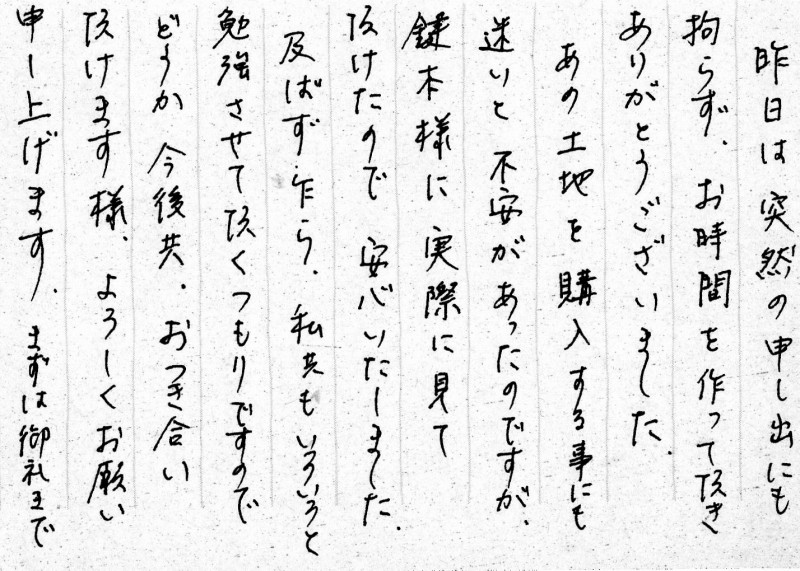 昨日は突然の申し出にも
拘らず、お時間を作って頂き
ありがとうございました。
あの土地を購入する事にも
迷いと不安があったのですが、
鎌本様に実際に見て
頂けたので安心いたしました。
及ばず乍ら、私共もいろいろと
勉強させて頂くつもりですので
どうか今後共、おつき合い
頂けます様、よろしくお願い
申し上げます。まずは御礼まで